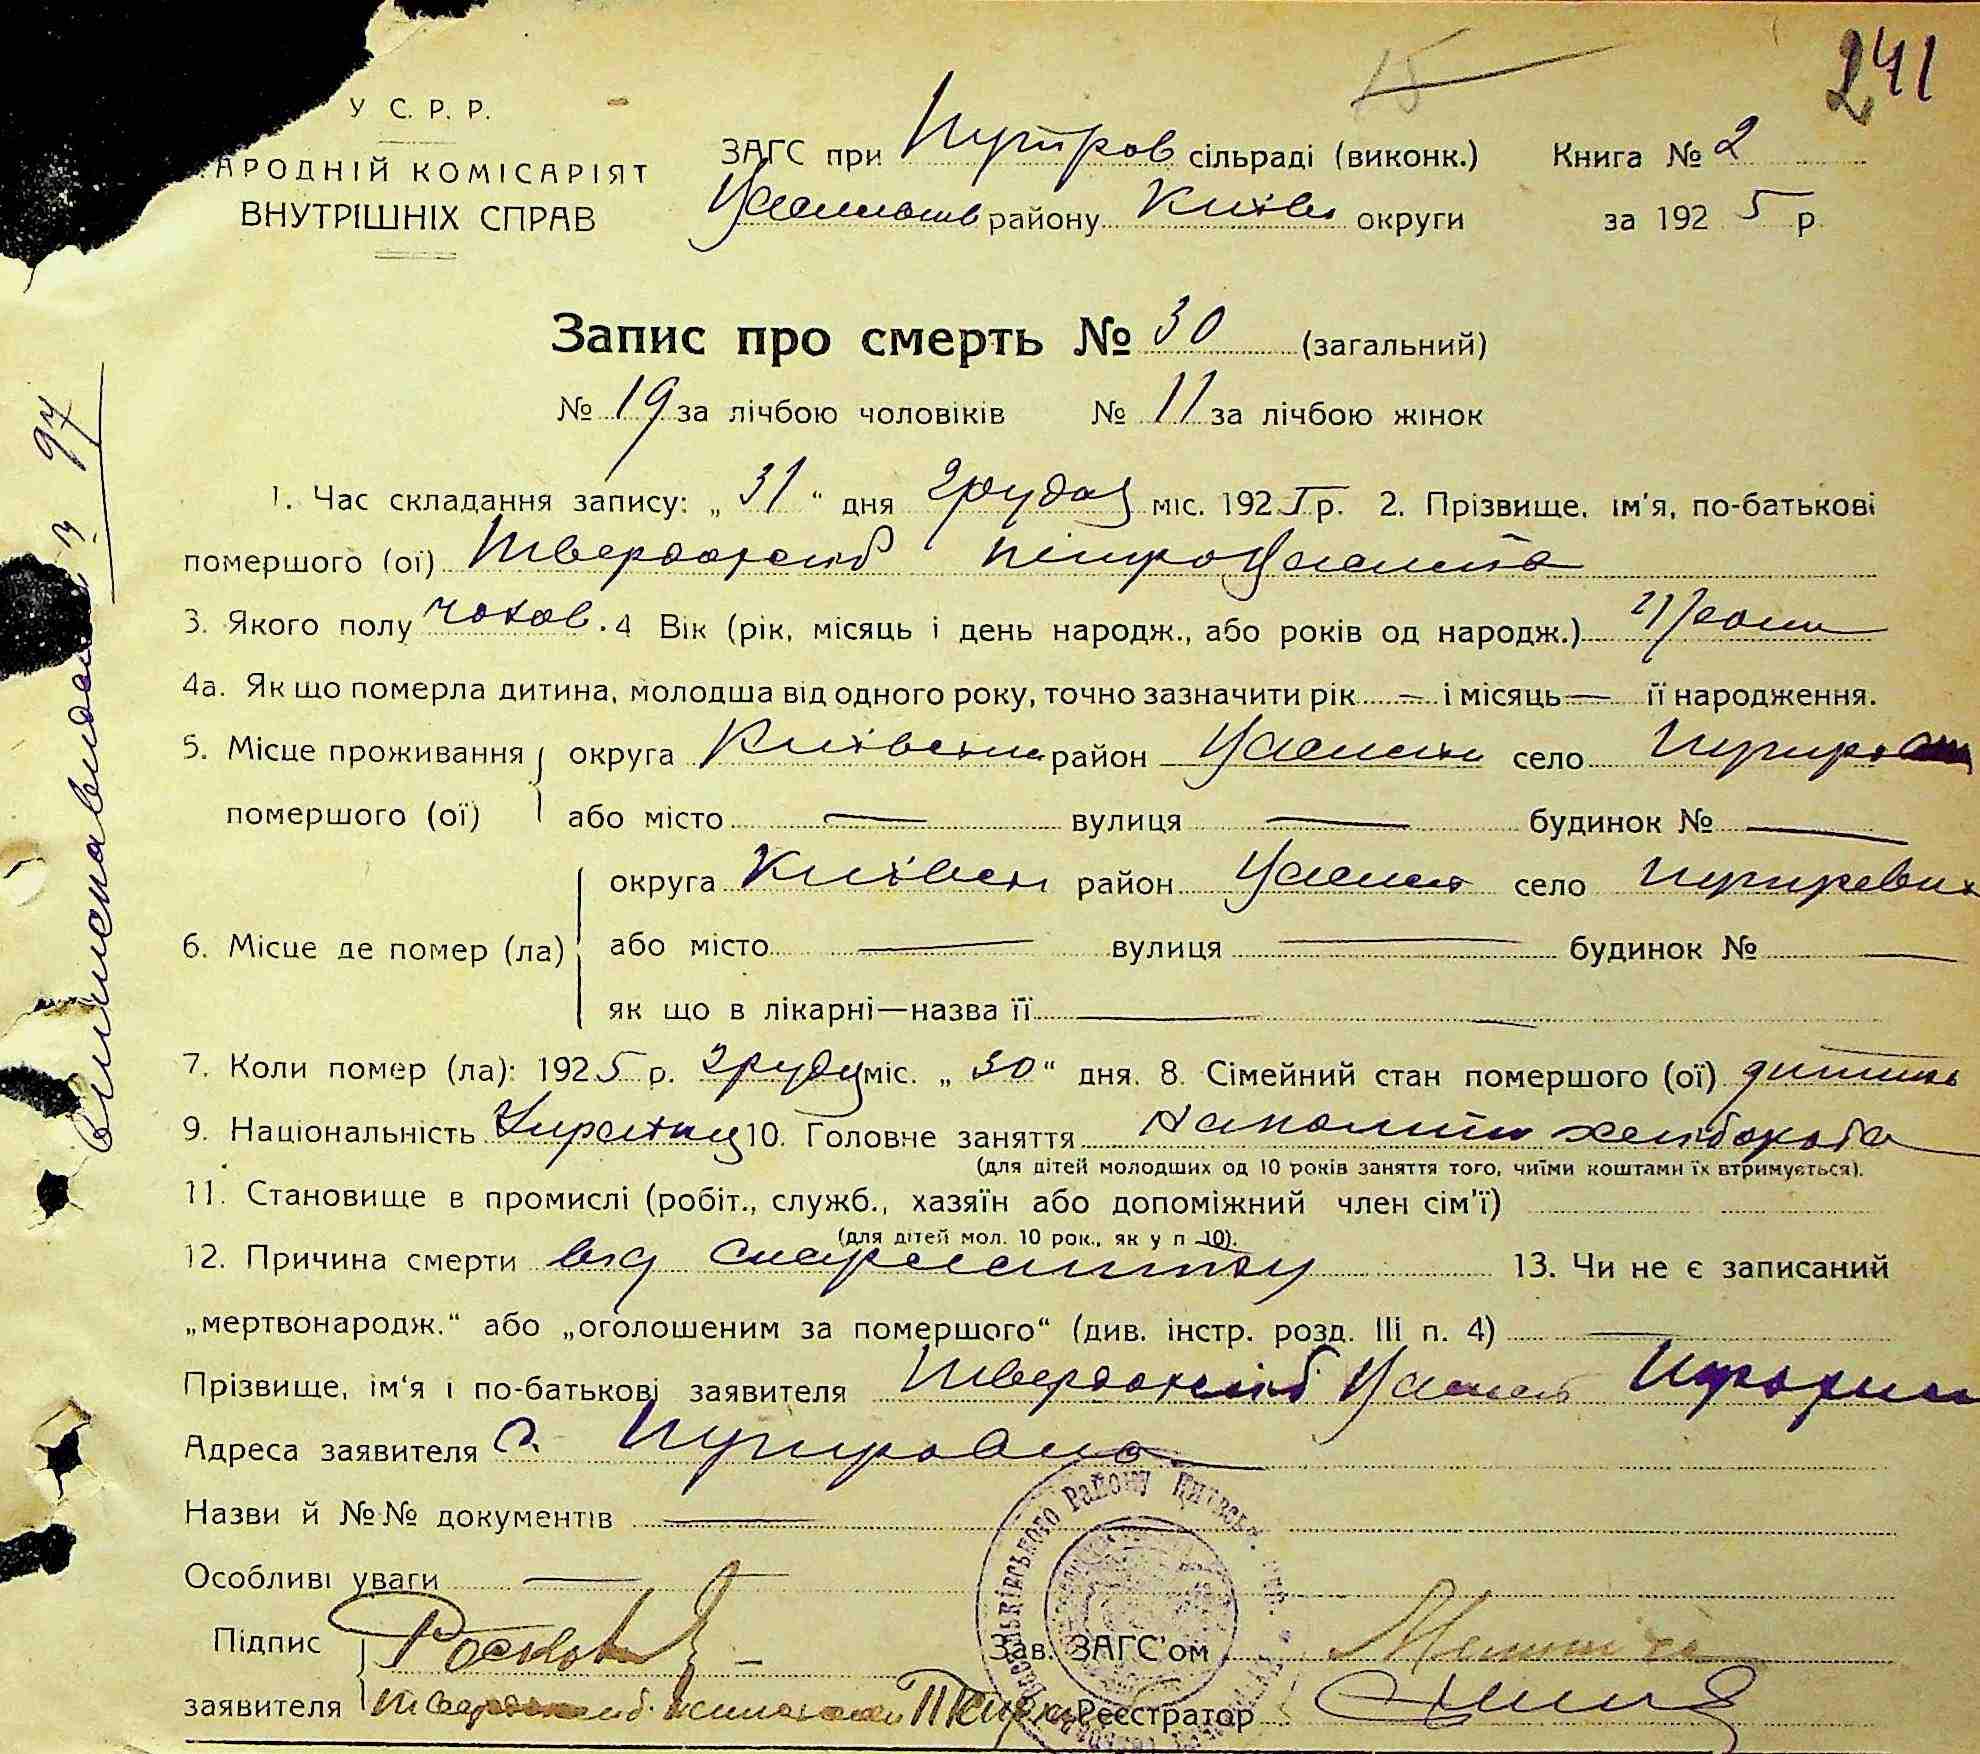 241
15
У С. Р. Р.
АРОДНІЙ КОМІСАРІЯТ
ВНУТРІШНІХ СПРАВ
ЗАГС при Путров сільраді (виконк.) Книга № 2
району Київс округи за 192 5 р.
Запис про смерть № 30 (загальний)
№ 19 за лічбою чоловіків № 11 за лічбою жінок
1. Час складання запису: „ 31 “ дня Грудня міс. 192 5 р. 2. Прізвище, ім'я, по-батькові
помершого (ої) Твердохліб Петро
3. Якого полу чолов. 4 Вік (рік, місяць і день народж., або років од народж.)
4а. Як що померла дитина, молодша від одного року, точно зазначити рік — і місяць — її народження.
5. Місце проживання округа Київська район село
помершого (ої) або місто — вулиця — будинок № —
округа Київськ район село
6. Місце де помер (ла) або місто — вулиця — будинок № —
як що в лікарні—назва її —
7. Коли помер (ла): 192 5 р. Грудня міс. „ 30 “ дня. 8. Сімейний стан помершого (ої) дитина
9. Національність 10. Головне заняття хлібороба
(для дітей молодших од 10 років заняття того, чиїми коштами їх втримується).
11. Становище в промислі (робіт., служб., хазяїн або допоміжний член сім'ї)
(для дітей мол. 10 рок., як у п 10).
12. Причина смерти від скарлатини 13. Чи не є записаний
„мертвонародж.“ або „оголошеним за помершого“ (див. інстр. розд. III п. 4) —
Прізвище, ім'я і по-батькові заявителя Твердохліб
Адреса заявителя С. Путровка
Назви й №№ документів —
Особливі уваги —
Підпис Зав. ЗАГС'ом
заявителя Твердохліб Реєстратор